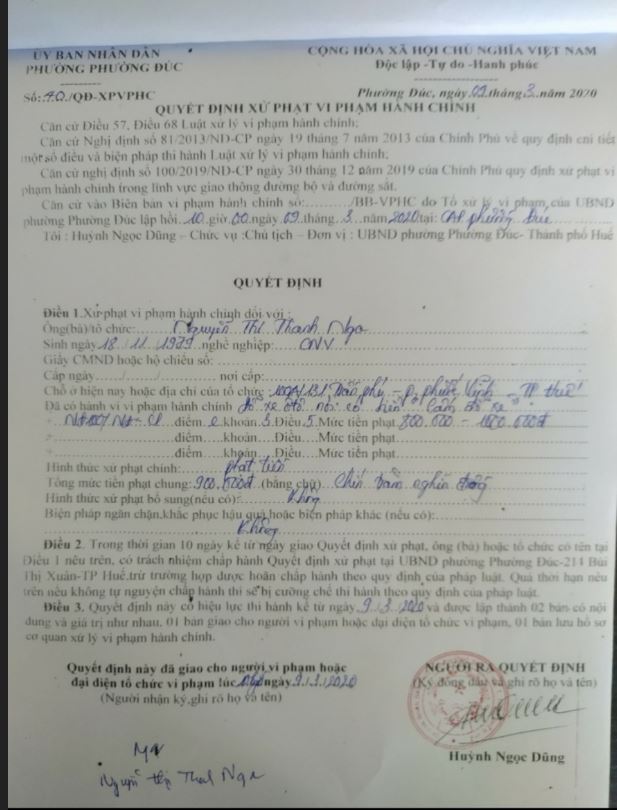 ỦY BAN NHÂN DÂN
PHƯỜNG PHƯỜNG ĐÚC
CỘNG HÒA XÃ HỘI CHỦ NGHĨA VIỆT NAM
Độc lập -Tự do -Hanh phúc
Số: 40./QĐ-XPVPHC
Phường Đúc, ngày 09 tháng 3 năm 2020
QUYẾT ĐỊNH XỬ PHẠT VI PHẠM HÀNH CHÍNH
Căn cứ Điều 57, Điều 68 Luật xử lý vi phạm hành chính;
Căn cứ Nghị định số 81/2013/NĐ-CP ngày 19 tháng 7 năm 2013 của Chính Phủ về quy định chi tiết
một số điều và biện pháp thi hành Luật xử lý vi phạm hành chính;
Căn cứ nghị định số 100/2019/NĐ-CP ngày 30 tháng 12 năm 2019 của Chính Phủ quy định xử phạt vi
phạm hành chính trong lĩnh vực giao thông đường bộ và đường sắt.
Căn cứ vào Biên bản vi phạm hành chính số:........./BB-VPHC do Tổ xử lý vi phạm của UBND
phường Phường Đúc lập hồi 10 giờ 00 ngày 09 tháng 3 năm 2020 tại: CA phường Đúc
Tôi : Huỳnh Ngọc Dũng – Chức vụ :Chủ tịch – Đơn vị : UBND phường Phường Đúc- Thành phố Huế
QUYẾT ĐỊNH
Điều 1.Xử phạt vi phạm hành chính đối với :
Ông(bà)/tổ chức: Nguyễn Thị Thanh Nga
Sinh ngày 18/11/1979 nghề nghiệp: CNV
Giấy CMND hoặc hộ chiếu số:
Cấp ngày....../....../...... nơi cấp:
Chỗ ở hiện nay hoặc địa chỉ của tổ chức : Trần phú – p. phước Vĩnh – TP Huế
Đã có hành vi vi phạm hành chính đỗ xe ôtô nơi có biển cấm đỗ xe
NĐ100/NĐ-CP điểm e khoản 3 Điều 5 Mức tiền phạt 800.000 – 1000.000đ
điểm.....khoản...Điều....Mức tiền phạt
điểm.....khoản...Điều....Mức tiền phạt
Hình thức xử phạt chính: phạt tiền
Tổng mức tiền phạt chung: 900.000đ (bằng chữ) Chín trăm nghìn đồng
Hình thức xử phạt bổ sung(nếu có): Không
Biện pháp ngăn chặn,khắc phục hậu quả hoặc biện pháp khác (nếu có):
Không
Điều 2. Trong thời gian 10 ngày kể từ ngày giao Quyết định xử phạt, ông (bà) hoặc tổ chức có tên tại
Điều 1 nêu trên, có trách nhiệm chấp hành Quyết định xử phạt tại UBND phường Phường Đúc-214 Bùi
Thị Xuân-TP Huế,trừ trường hợp được hoãn chấp hành theo quy định của pháp luật. Quá thời hạn nêu
trên nếu không tự nguyện chấp hành thì sẽ bị cưỡng chế thi hành theo quy định của pháp luật.
Điều 3. Quyết định này có hiệu lực thi hành kể từ ngày 9/3/2020 và được lập thành 02 bản có nội
dung và giá trị như nhau, 01 bản giao cho người vi phạm hoặc đại diện tổ chức vi phạm, 01 bản lưu hồ sơ
cơ quan xử lý vi phạm hành chính.
Quyết định này đã giao cho người vi phạm hoặc
đại diện tổ chức vi phạm lúc ngày 9/3/2020
(Người nhận ký,ghi rõ họ và tên)
NGƯỜI RA QUYẾT ĐỊNH
(Ký đóng dấu và ghi rõ họ và tên)
Huỳnh Ngọc Dũng
Nguyễn thị Thanh Nga